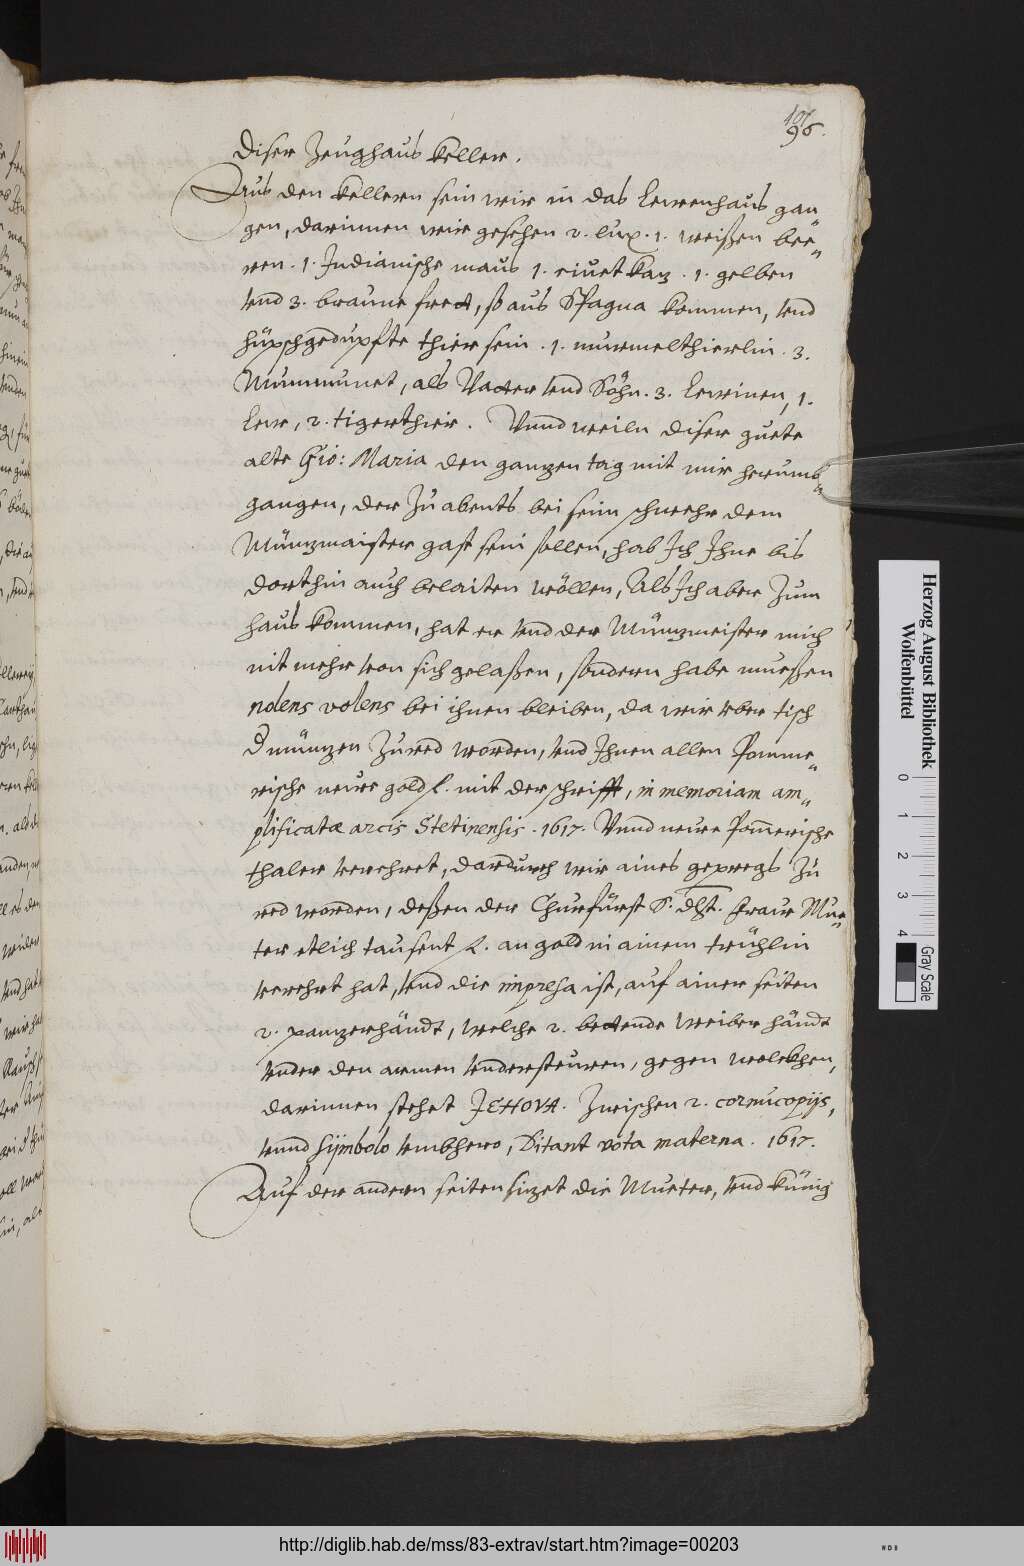 96.
diser Zeughaus keller.
Aus den kellern sein wir in das Lewenhaus gan„
gen, darinnen wir gesehen 2. lux. 1. weißen bee„
ren. 1. Indianische maus 1. ziuetkaz. 1. gelben
vnd 3. braune fret, so aus Spagna kommen, vnd
hüpschgedupfte thier sein. 1. murmelthierlin. 3.
Mummunet, als Vatter vnd Söhn. 3. Lewinen, 1.
Lew, 2. tigerthier. Vnnd weiln diser guete
alte Gio: Maria den ganzen tag mit mir herumb„
gangen, der zu abents bei seim schwehr dem
Münzmaister gast sein sollen, hab Ich Ihne bis
dorthin auch belaiten wöllen, Als Ich aber zum
haus kommen, hat er vnd der Münzmeister mich
nit mehr von sich gelaßen, sondern habe mueßen
nolens volens bei ihnen bleiben, da wir vber tisch
d münzen zu red worden, vnd Ihnen allen Pomme„
rische newe gold f. mit der schrifft, in memoriam am„
plificatæ arcis Stetinensis. 1617. Vnnd newe Pom̅erische
thaler verehret, dardurch wir aines gepregs zu
red worden, deßen der Churfürst S. dht. fraw Mue„
ter etlich tausent f. an gold in ainem trühlin
verehrt hat, vnd die impresa ist, auf ainer seiten
2. panzerhändt, welche 2. bettende weiber händt
vnder den armen vndersteuren, gegen wolckhen,
darinnen stehet JEHOVA. Zwischen 2. cornucopijs,
vnnd Sijmbolo vmbhero, Ditant vota materna. 1617.
Auf der andern seiten sizet die Mueter, vnd künig
Herzog August Bibliothek
Wolfenbüttel
0 1 2 3 4
Gray Scale
http://diglib.hab.de/mss/83-extrav/start.htm?image=00203